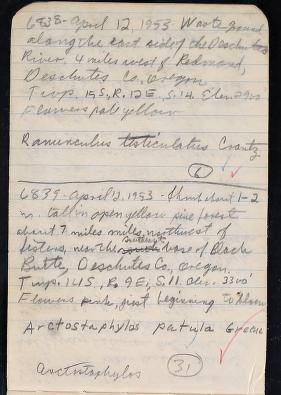 6838 - April 12, 1953. Waste ground
along the east side of the Deschutes
River, 4 miles west of Redmond,
Deschutes Co., Oregon
Twp. 15 S., R. 12 E., S. 14. Elev. 2900
Flowers pale yellow
Ranunculus testiculatus Crantz
6
6839 - April 12, 1953 - Shrub about 1-2
m. tall in open yellow pine forest
about 7 miles miles, northwest of
Sisters, near the south base of Black
Butte, Deschutes Co., Oregon.
Twp. 14 S., R. 9 E., S. 11. elev. 3300'
Flowers pink, just beginning to bloom
Arctostaphylos patula Greene
Arctostaphylos
31